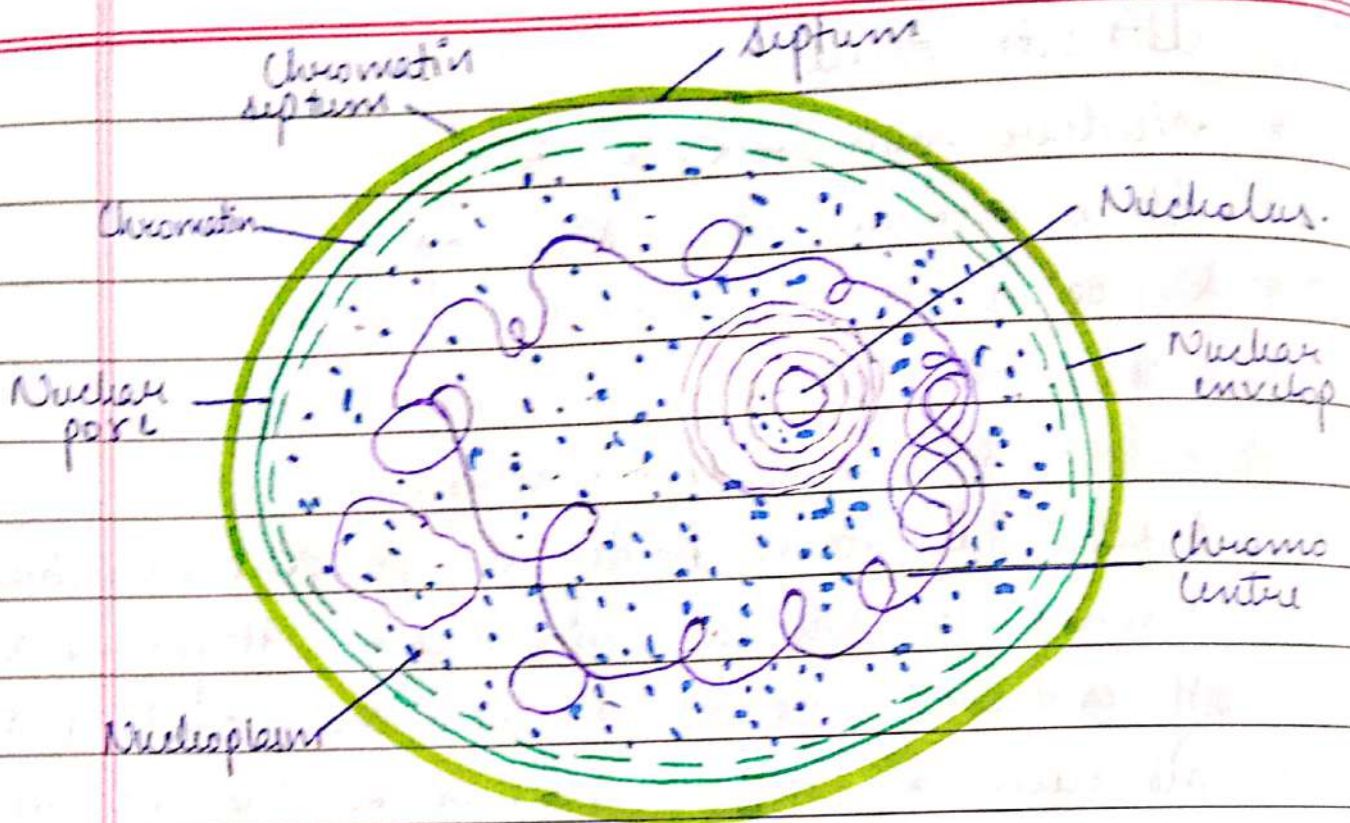 Septum
Chromatin
septum
Chromatin
Nucholus.
Nuclear
envelop
Nuclear
pore
chromo
Centre
Nucleoplasm